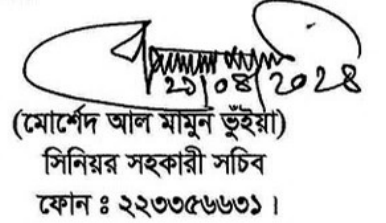 ২১/০৪/২০২৪
(মোর্শেদ আল মামুন ভুঁইয়া)
সিনিয়র সহকারী সচিব
ফোন ঃ ২২৩৩৫৬৬৩১।